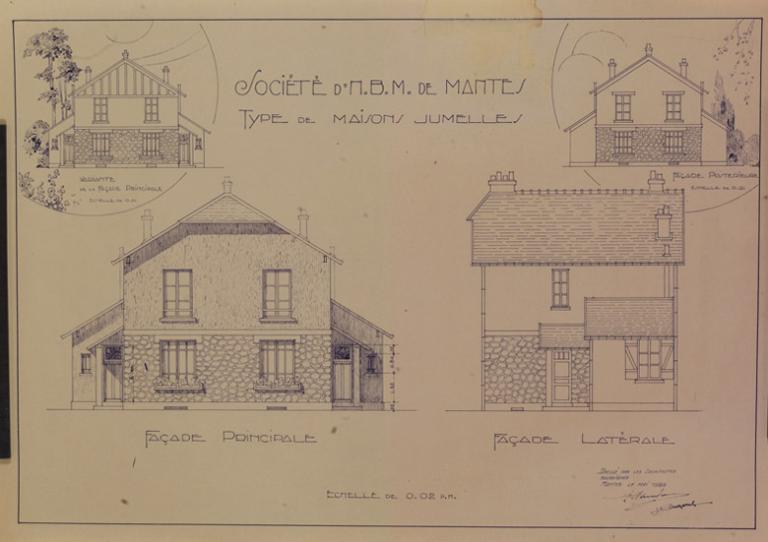 SOCIÉTÉ D'H.B.M. DE MANTES
TYPE DE MAISONS JUMELLES
VARIANTE
DE LA FAÇADE PRINCIPALE
ECHELLE DE 0.01
FAÇADE POSTERIEURE
ECHELLE DE 0.01
FAÇADE PRINCIPALE
FAÇADE LATÉRALE
ECHELLE DE 0.02 P.M.
DRESSÉ PAR LES ARCHITECTES
SOUSSIGNÉS
MANTES LE MAI